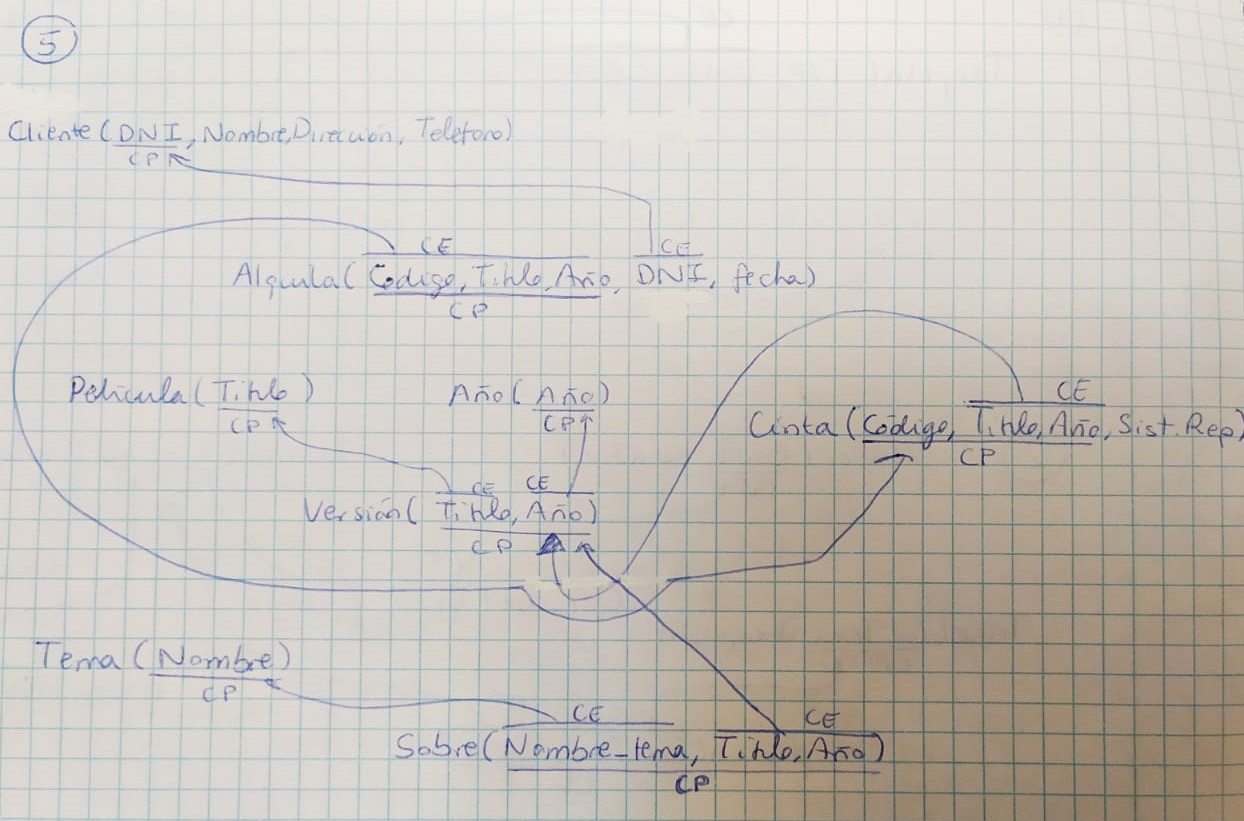 5
Cliente (DNI, Nombre, Dirección, Teléfono)
CP
CE CE
Alquila( Código, Título, Año, DNI, fecha)
CP
Película( Título ) Año( Año)
CP CP
CE
Cinta (Código, Título, Año, Sist. Rep)
CP
CE CE
Versión( Título, Año)
CP
Tema (Nombre)
CP
CE CE
Sobre( Nombre_tema, Título, Año)
CP